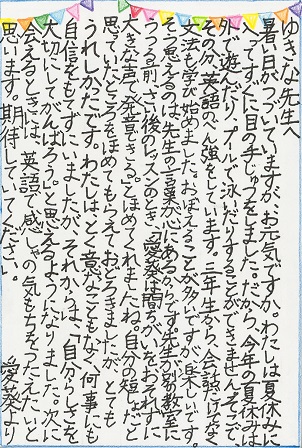 ゆきな先生へ
暑い日がつづいていますが、お元気ですか。わたしは夏休みに
入ってすぐに目の手じゅつをしました。だから、今年の夏休みは
外で遊んだり、プールで泳いだりすることができません。そこで
その分、英語の勉強をしています。三年生から、会話だけでなく
文法も学び始めました。おぼえることが多いですが、楽しいです。
そう思えるのは、先生の言葉が心にあるからです。先生が別の教室に
うつる前、さい後のレッスンのとき、「愛発は間ちがいをおそれずに
大きな声で発言できる。」とほめてくれましたね。自分の短しょだと
思っていたところをほめてもらえておどろきましたが、とても
うれしかったです。わたしは、とく意なこともなく、何事にも
自信をもてずにいましたが、それからは、「自分らしさを
大切にしてがんばろう。」と思えるようになりました。次に
会えるときには、英語で感しゃの気もちをつたえたいと
思います。期待していてください。
愛発より